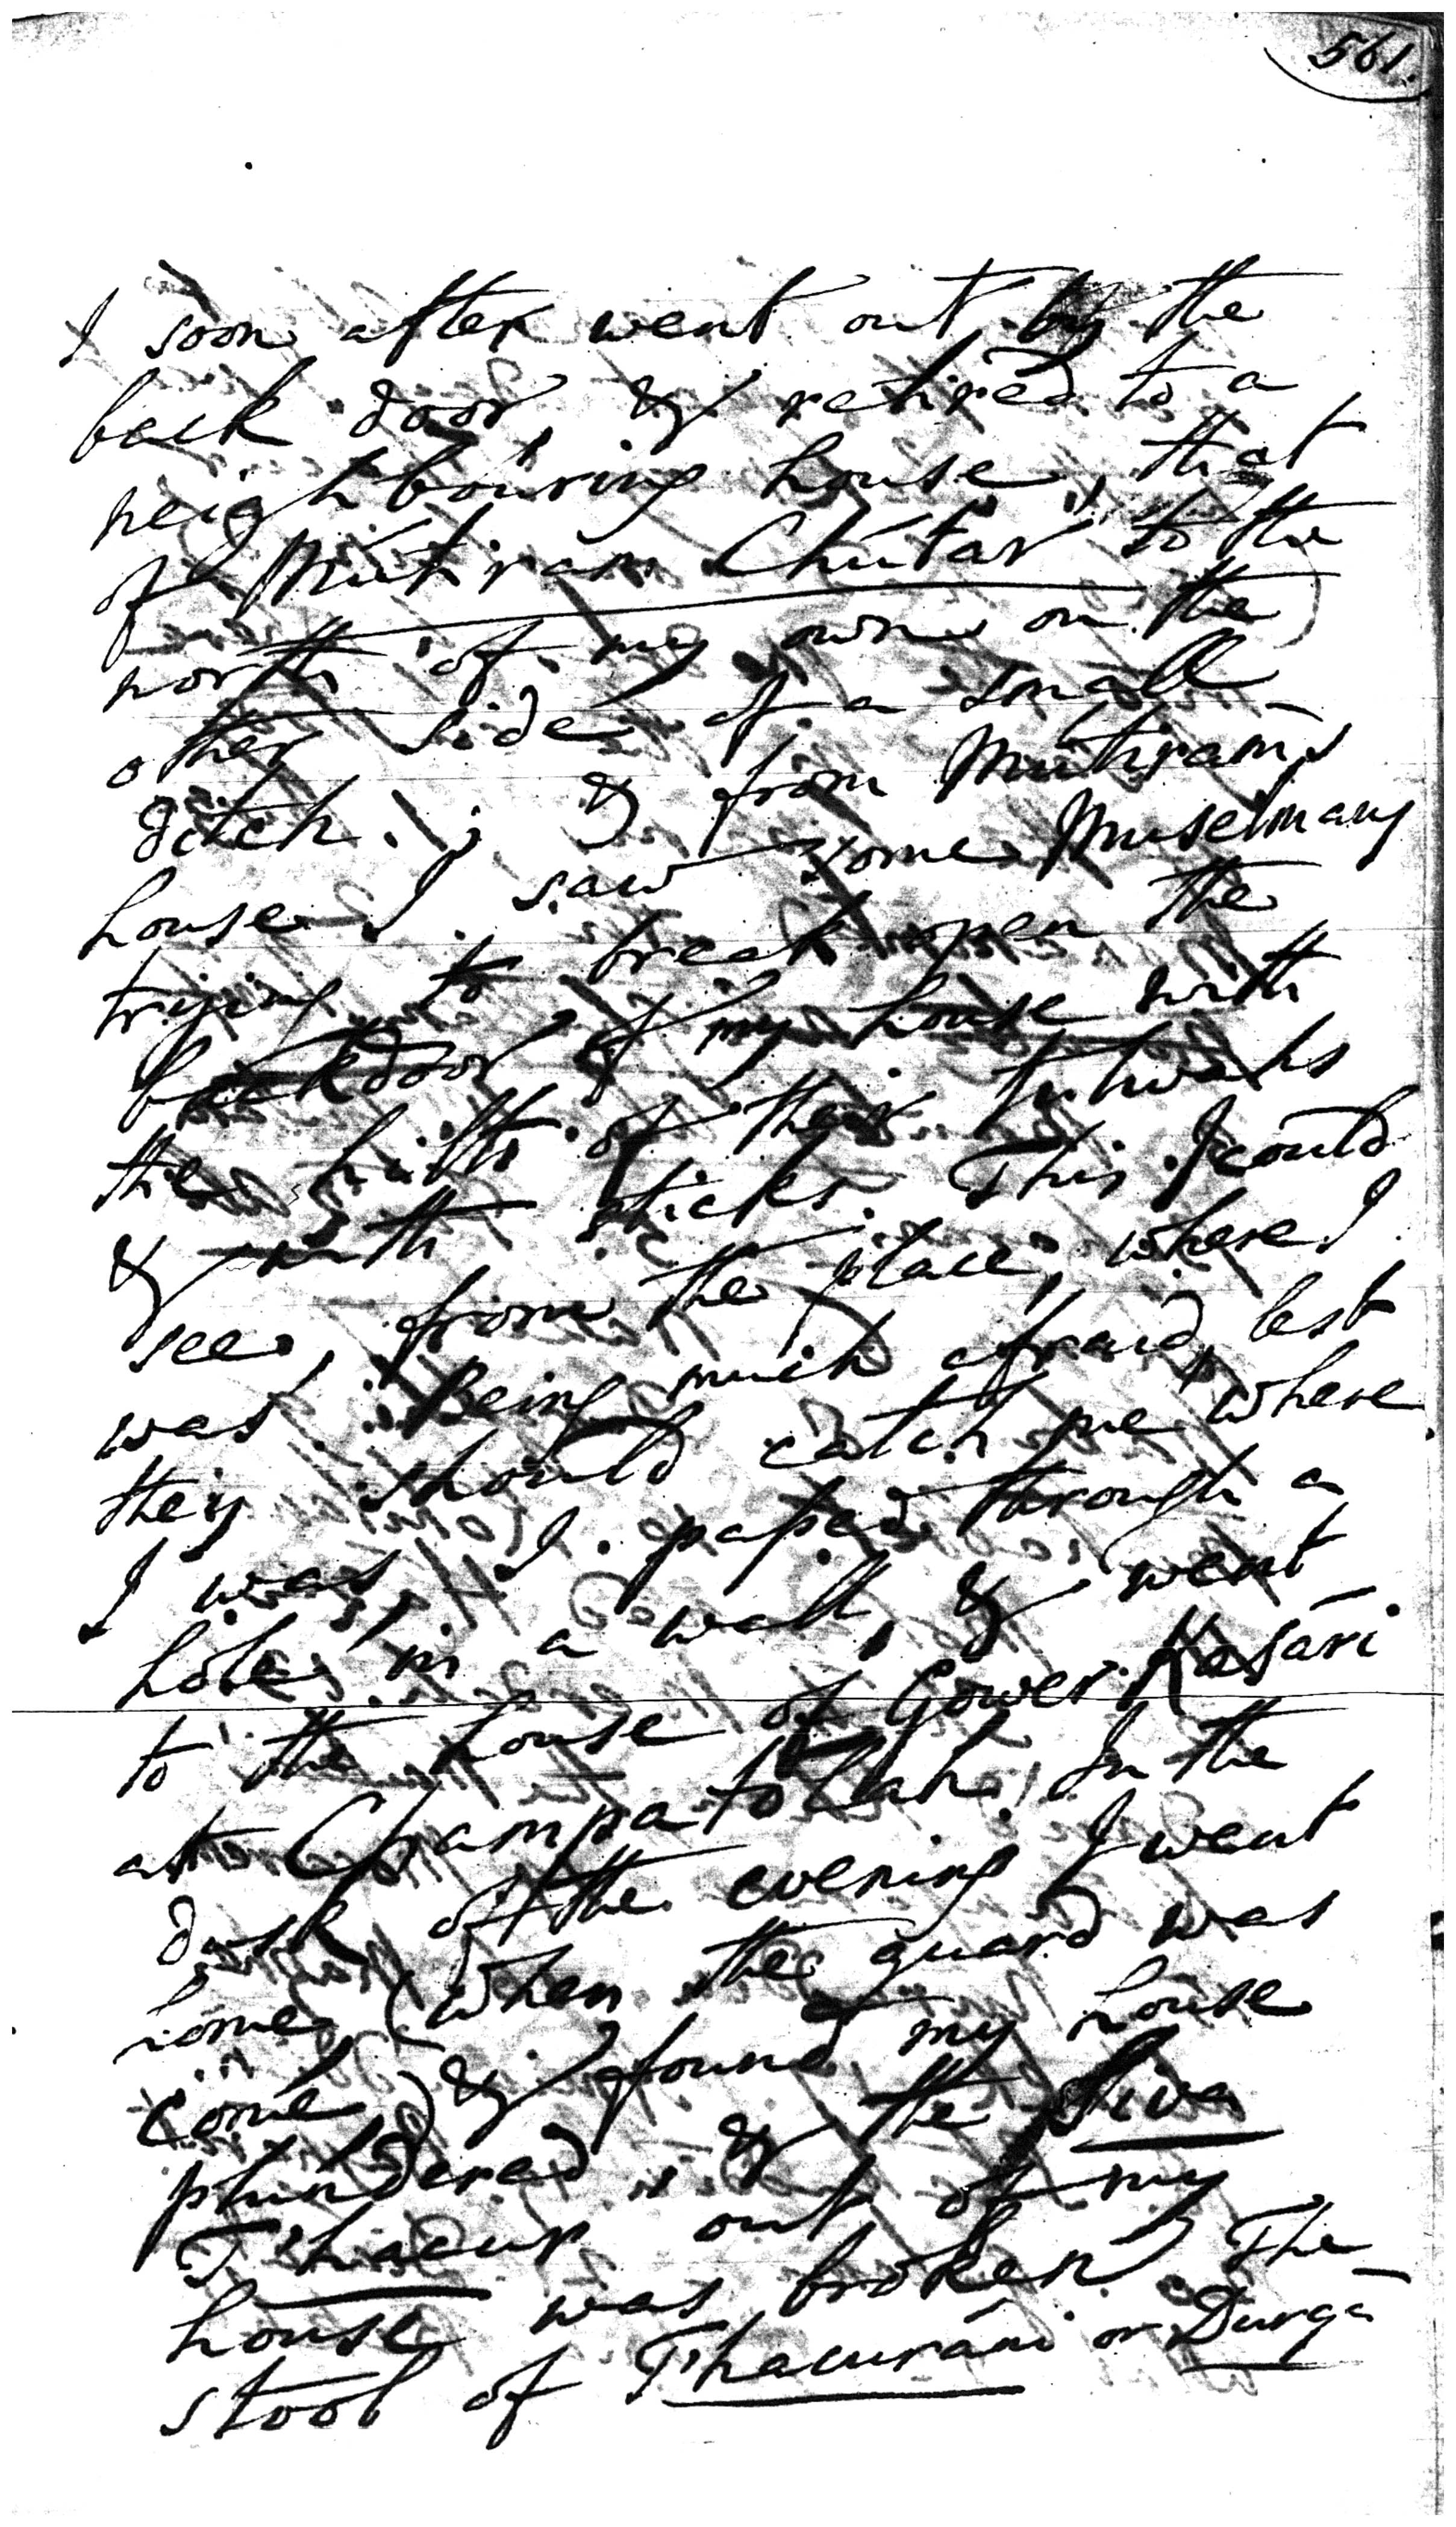 561.
I soon after went out by the
back door, & retired to a
neighbouring house, that
of Mutiram Chutar to the
north of my own on the
other side of a small
ditch; & from Mutiram's
house I saw some Muselmans
trying to break open the
backdoor of my house with
the hilts of their tulwahs
& with sticks. This I could
see, from the place, where I
was. Being much afraid, lest
they should catch me where
I was, I passed through a
hole in a wall, & went
to the house of Gower Kasári
at Champatolah. In the
dusk of the evening I went
home (when the guard was
come) & found my house
plundered, & the Siva
T'hacur out of my
house was broken. The
stool of T'hacuráni or Durgā